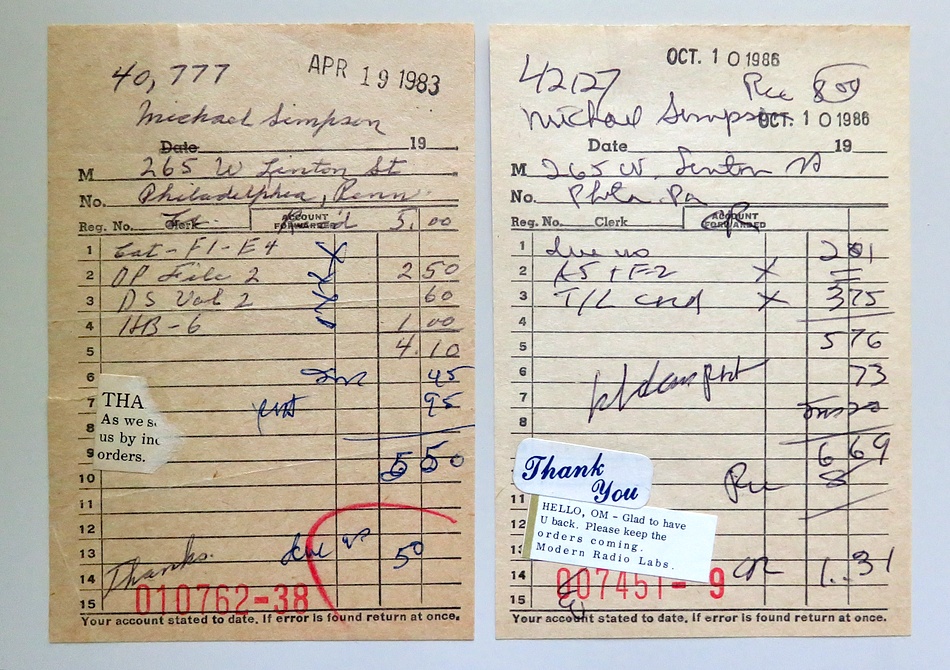 40,777
APR 19 1983
Michael Simpson
Date 19
M 265 W Linton St
No. Philadelphia, Penn
Reg. No. Clerk ACCOUNT FORWARDED 5.00
1 Cat-F1-E4 X
2 DP File 2 2 50
3 DS Vol 2 60
4 HB-6 1 00
5 4.10
6 45
7 95
THA
As we s
8
us by inc
9 orders. 5 50
10
11
12
13 due us 50
14 Thanks.
15 010762-38
Your account stated to date. If error is found return at once.
OCT. 10 1986
42127 Rec 8.00
Michael Simpson OCT. 10 1986
Date 19
M 265 W. Linton St
No. Phila. Pa
Reg. No. Clerk ACCOUNT FORWARDED
1 due us 201
2 K5 + F-2 X
3 T/L cnd X 375
4
5 5 76
6 73
7
8
6 69
Thank You
Rec 8
11
HELLO, OM - Glad to have
U back. Please keep the
12
orders coming.
13 Modern Radio Labs.
14 007451-9 CR 1.31
15
Your account stated to date. If error is found return at once.